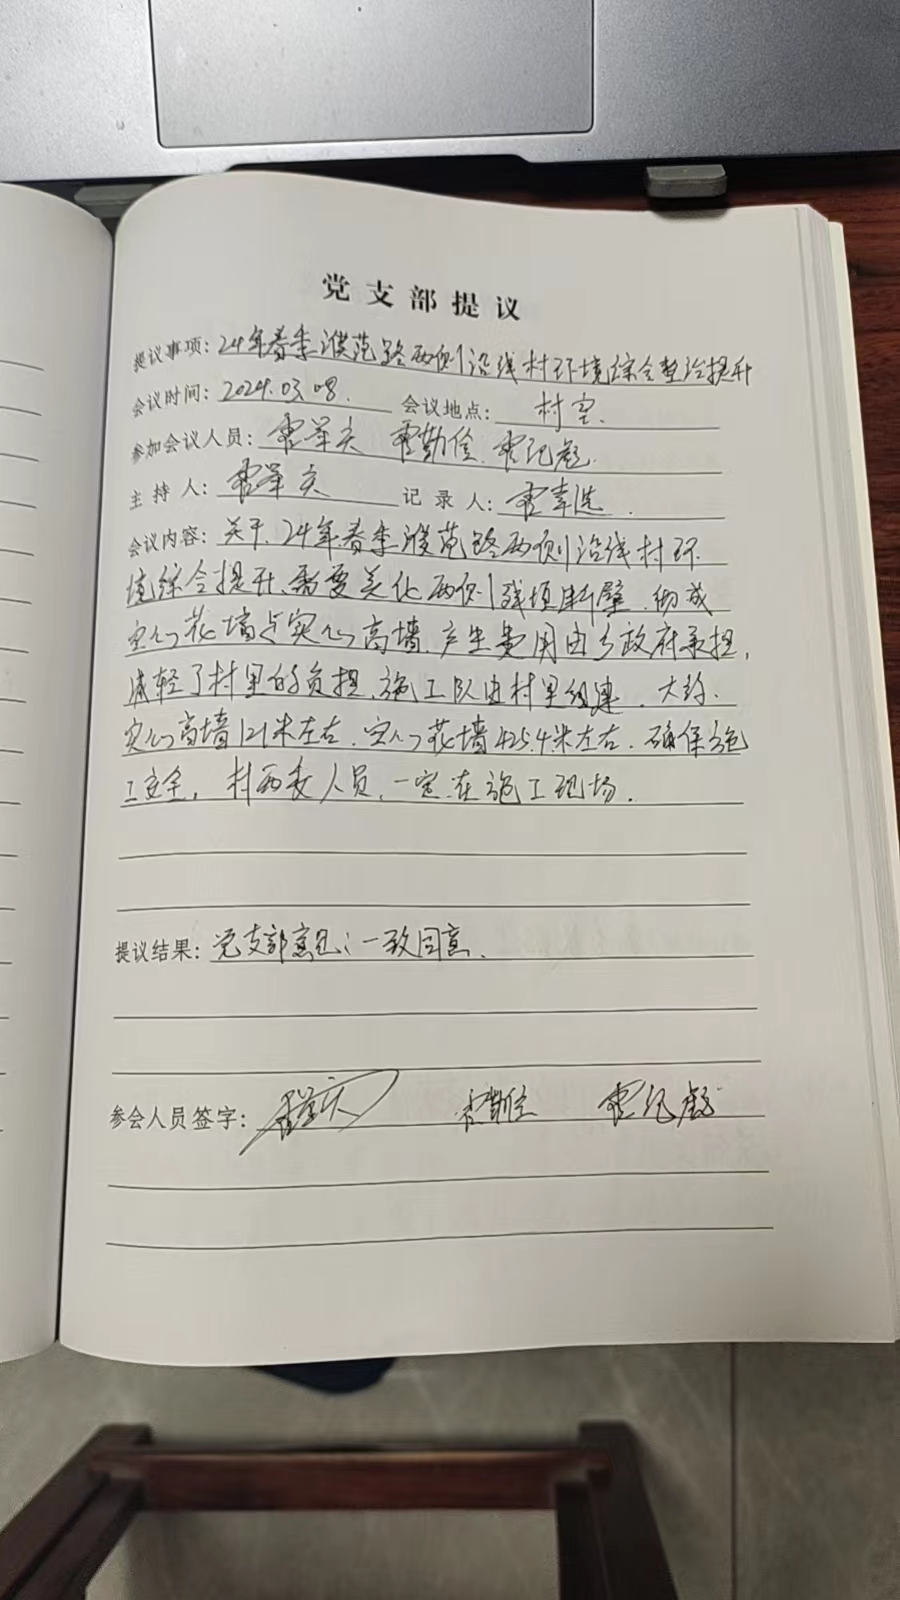 党支部提议
提议事项：24年春季濮范路两侧沿线村环境综合整治提升
会议时间：2024.03.08. 会议地点：村室.
参加会议人员：
主持人： 记录人：
会议内容：关于.24年春季濮范路两侧沿线村环
境综合提升、需要美化两侧残垣断壁.彻成
实心花墙与实心高墙.产生费用由乡政府承担，
减轻了村里的负担、施工队由村里组建.大约.
实心高墙121米左右.实心花墙425.4米左右.确保施
工安全，村两委人员.一定在施工现场.
提议结果：党支部意见：一致同意.
参会人员签字：